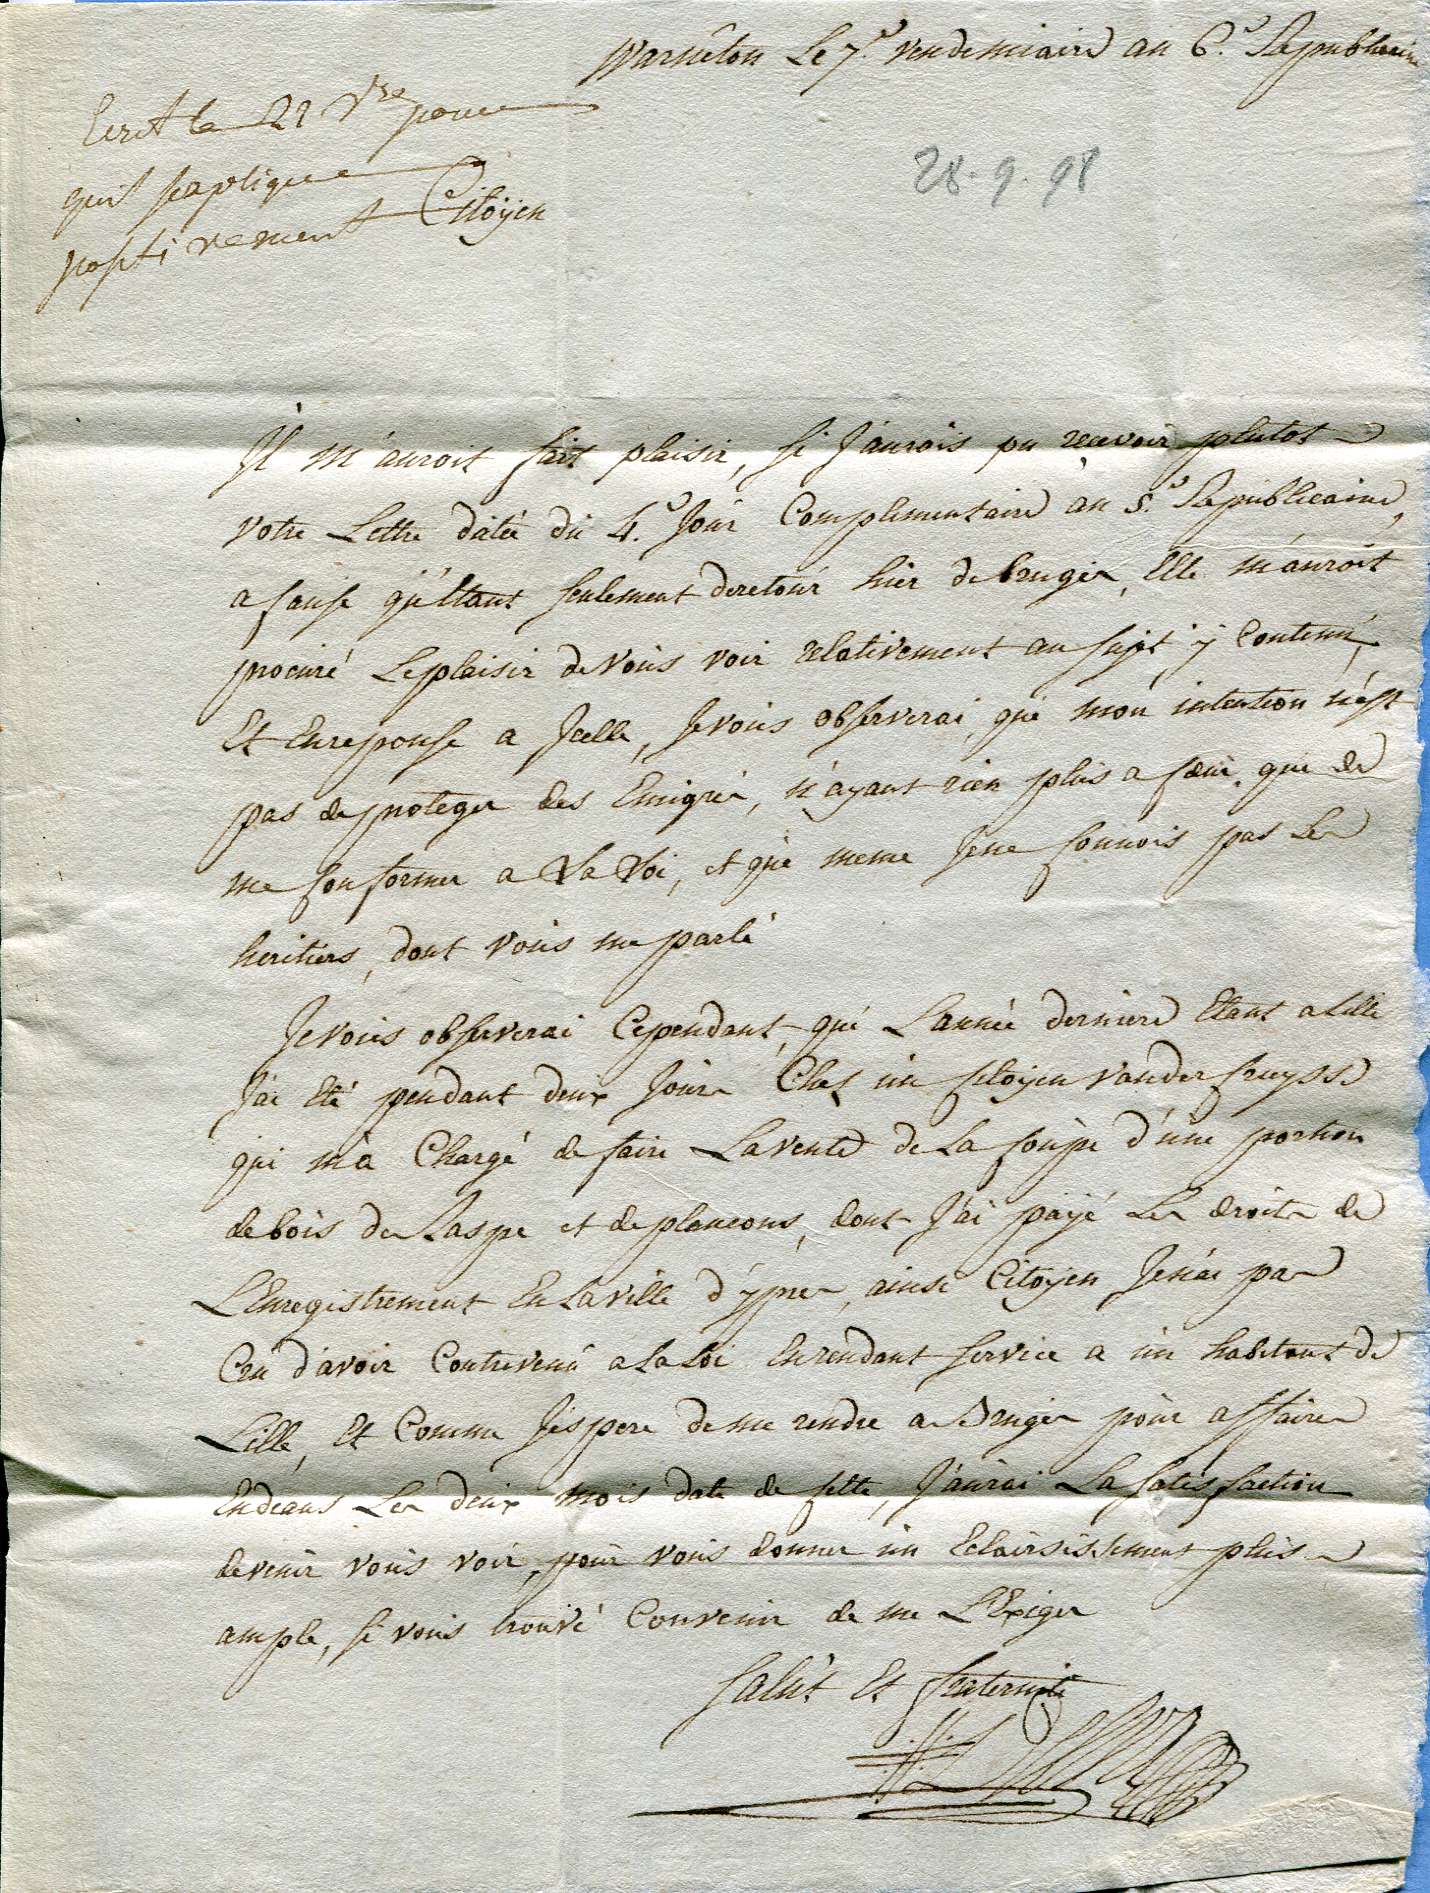 Warnêton Le 7.e vendemiaire an 6.e Republicaine
Ecrit le 21 Vre pour
qu'il s'explique
positivement
28.9.98
Citoÿen
Il m'auroit fait plaisir, si J'aurois pu recevoir plutot
votre Lettre datée du 4.e Jour Complimentaire an 5.e Republicaine,
a cause qu'Etant seulement deretour hier de bruges, Elle m'auroit
procuré Leplaisir de vous voir relativement au sujet y Contenu,
Et Enreponse a Jcelle, Je vous observerai que mon intention n'est
pas de proteger des Emigrés, n'ayant rien plus a coeur que de
me conformer a La Loi, et que meme Jene connois pas les
heritiers, dont vous me parlé
Je vous observerai Cependant, que L'année derniere Etant a Lille
J'ai Eté pendant deux Jours Chez un citoyen vander
qui m'a Chargé de faire Lavente de La coupe d'une portion
de bois de Raspe et de plancons, dont J'ai payé les droits de
L'Enregistrement En Laville d'ypres, ainsi Citoyen Jen'ai pas
Cru d'avoir Contrevenu a La Loi Enrendant service a un habitant de
Lille, Et Comme J'espere de me rendre a Bruges pour affaires
Endeans Les deux mois date de cette, J'aurai La satisfaction
devenir vous voir, pour vous donner un Eclairsissement plus
ample, si vous trouvé Convenir de me L'Exiger
Salut Et fraternité